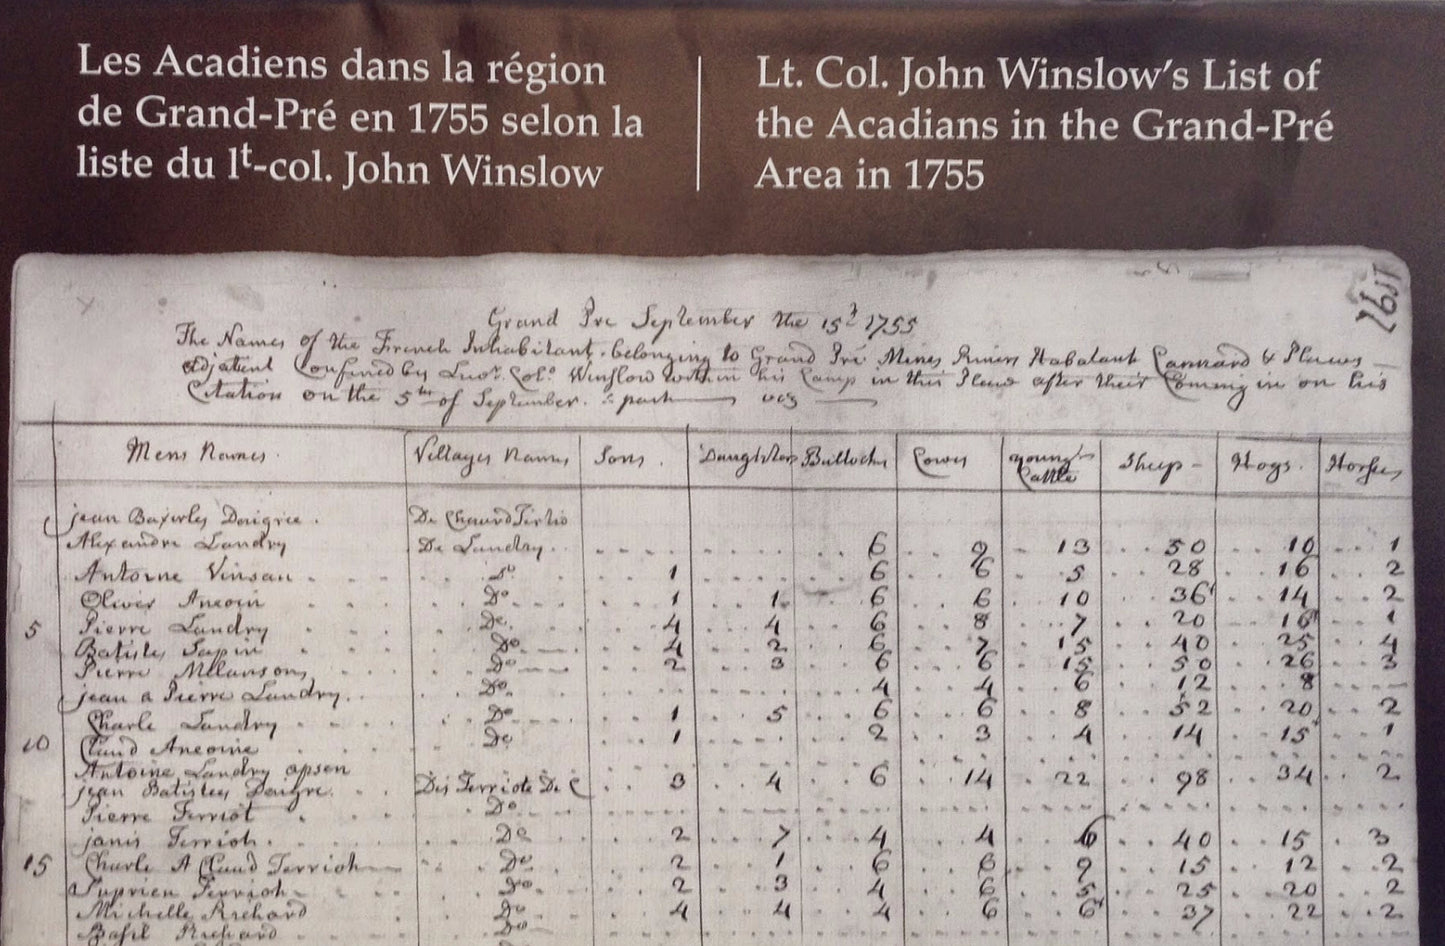 Les Acadiens dans la région
de Grand-Pré en 1755 selon la
liste du lt-col. John Winslow
Lt. Col. John Winslow's List of
the Acadians in the Grand-Pré
Area in 1755
Grand Pre September the 15d 1755
The Names of the French Inhabitant. belonging to Grand Pré Mines Rivers Habatant Cannard & Places
adjatent Confined by Winslow within his Camp in this Place after their Comming in on his
Citation on the 5th of September.
Mens Names. Villages Names Sons. Daughters Bullocks Cows Young Cattle Sheep Hogs. Horses
jean
Alexandre Landry De Landry. 6 9 13 50 10 1
Antoine Vinsan Do 1 6 6 5 28 16 2
Oliver Do 1 1 6 6 10 36 14 2
5 Pierre Landry Do 4 4 6 8 7 20 1
Do 4 2 6 7 15 40 25 4
Pierre Melanson Do 2 3 6 6 15 50 26 3
jean a Pierre Landry. Do. 4 4 6 12 8
Charle Landry Do 1 5 6 6 8 52 20 2
10 Claud Do 1 2 3 4 14 15 1
Antoine Landry
jean 3 4 6 14 22 98 34 2
Pierre Terriot Do
janis Terrioh. Do 2 7 4 4 6 40 15 3
15 Charle A Claud Terrioh Do 2 1 6 6 9 15 12 2
Terrioh Do. 2 3 4 6 5 25 20 2
Michelle Richard Do 4 4 4 6 6 37 22 2
Basil Richard Do